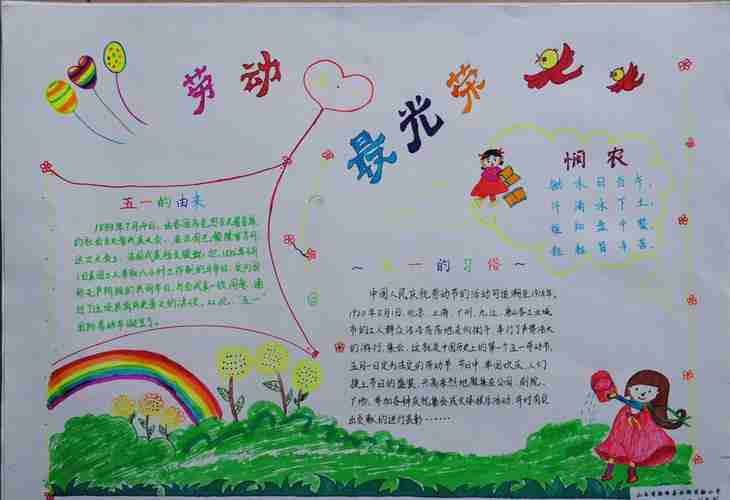 劳动
最光荣
五一的由来
1889年7月14日，由各国马克思主义者召集
的社会主义者代表大会，在法国巴黎隆重开幕。
这次大会上，法国代表拉文提议：把1886年5月
1日美国工人争取八小时工作制的斗争日，定为国
际无产阶级的共同节日。与会代表一致同意，通
过了这项具有历史意义的决议。从此，“五一”
国际劳动节诞生了。
悯农
锄禾日当午，
汗滴禾下土，
谁知盘中餐，
粒粒皆辛苦。
～五一的习俗～
中国人民庆祝劳动节的活动可追溯至1918年。
1920年5月1日，北京、上海、广州、九江、唐山各工业城
市的工人群众浩浩荡荡地走向街市、举行了声势浩大
的游行、集会。这就是中国历史上的第一个五一劳动节。
五月一日定为法定的劳动节。节日中举国欢庆，人们
换上节日的盛装，兴高采烈地聚集在公园、剧院、
广场，参加各种庆祝集会或文体娱乐活动，并对有突
出贡献的进行表彰……